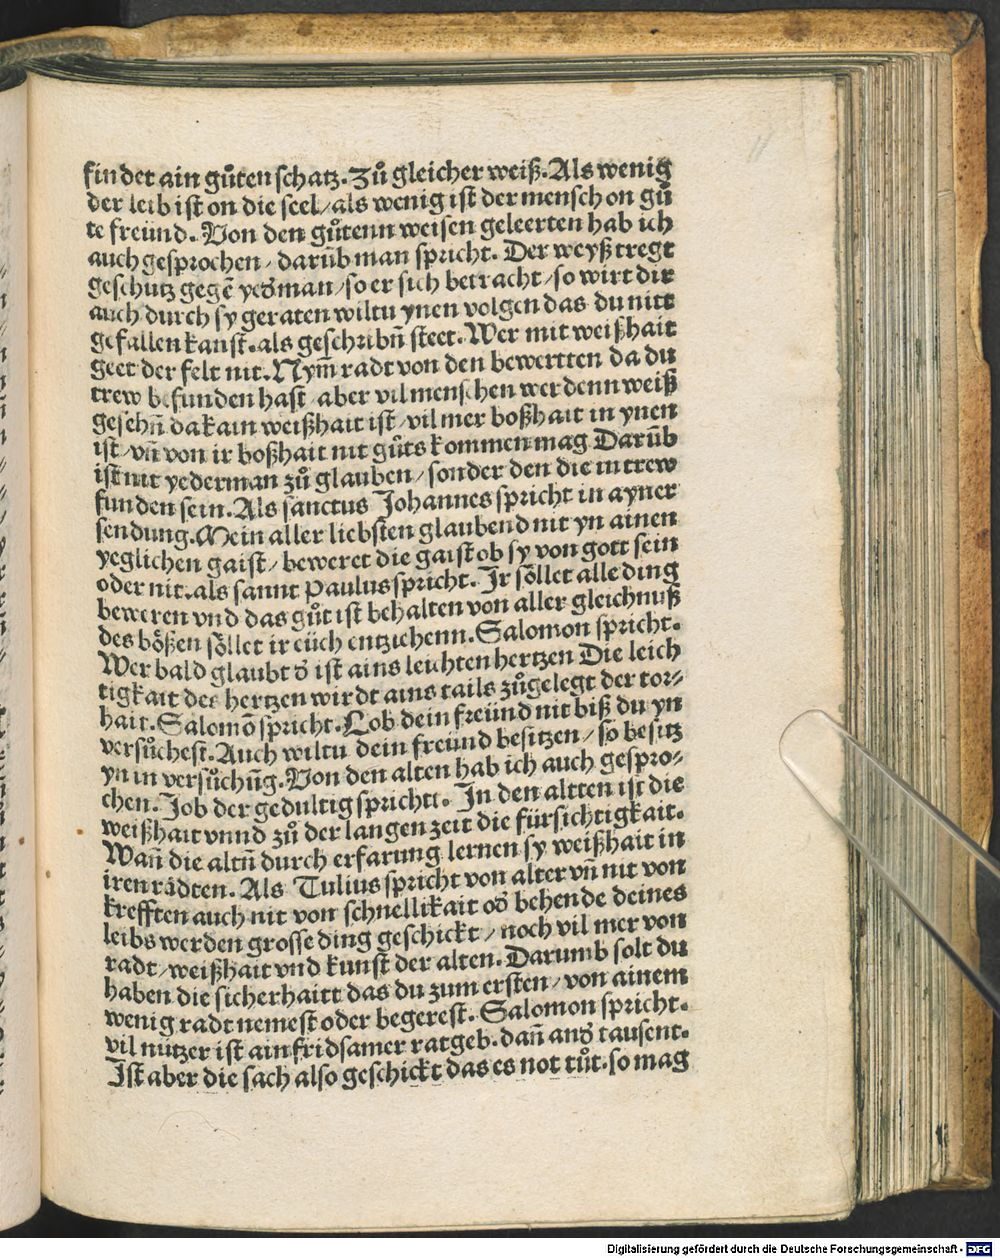 findet ain gůten schatz. Zů gleicher weiß. Als wenig
der leib ist on die seel/als wenig ist der mensch on gů
te freünd. Von den gůtenn weisen geleerten hab ich
auch gesprochen/darüb man spricht. Der weyß tregt
geschutz gegē yeďman/so er sich betracht/so wirt dir
auch durch sy geraten wiltu ynen volgen das du nitt
gefallen kanst. als geschribn̄ steet. Wer mit weißhait
geet der felt nit. Nym̄ radt von den bewertten da du
trew befunden hast aber vil menschen werdenn weiß
gesehn̄ da kain weißhait ist/vil mer boßhait in ynen
ist/vn̄ von ir boßhait nit gůts kommen mag Darūb
ist nit yederman zů glauben/sonder den die in trew
funden sein. Als sanctus Johannes spricht in ayner
sendung. Mein aller liebsten glaubend nit yn ainen
yeglichen gaist/beweret die gaist ob sy von gott sein
oder nit. als sannt Paulus spricht. Jr söllet alle ding
beweren vnd das gůt ist behalten von aller gleichnuß
des bößen söllet ir eüch entziehenn. Salomon spricht.
Wer bald glaubt ď ist ains leichten hertzen Die leich
tigkait des hertzen wirdt ains tails zůgelegt der tor⸗
hait. Salomō spricht. Lob dein freünd nit biß du yn
versůchest. Auch wiltu dein freünd besitzen/so besitz
yn in versůchūg. Von den alten hab ich auch gespro⸗
chen. Job der gedultig spricht. In den altten ist die
weißhait vnnd zů der langen zeit die fürsichtigkait.
Wan̄ die altn̄ durch erfarung lernen sy weißhait in
iren rädten. Als Tulius spricht von alter vn̄ nit von
krefften auch nit von schnellikait oď behende deines
leibs werden grosse ding geschickt/noch vil mer von
radt/weißhait vnd kunst der alten. Darumb solt du
haben die sicherhaitt das du zum ersten/von ainem
wenig radt nemest oder begerest. Salomon spricht.
vil nützer ist ain fridsamer ratgeb. dan̄ anď tausent.
Ist aber die sach also geschickt das es not tůt. so mag
Digitalisierung gefördert durch die Deutsche Forschungsgemeinschaft - DFG